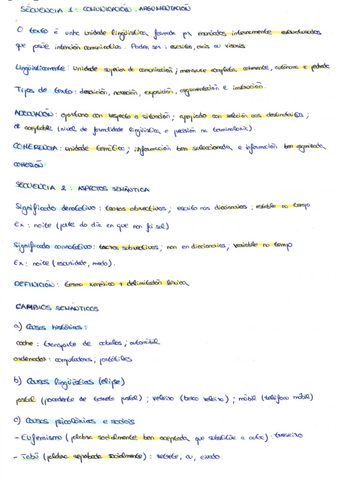 SECUENCIA 1: COMUNICACIÓN, ARGUMENTACIÓN
O texto é unha unidade lingüística, formada por enunciados internamente estruturados
que posúe intención comunicativa. Poden ser: escritos, orais ou visuais.
Lingüisticamente: Unidade superior de comunicación; mensaxe completa, coherente, autónoma e pechada
Tipos de texto: descrición, narración, exposición, argumentación e instrución.
ADECUACIÓN: oportuno con respecto a situación; apropiado con relación aos destinatarios;
aceptable (nivel de formalidade lingüística e precisión na terminoloxía).
COHERENCIA: unidade temática; información ben seleccionada e información ben organizada.
COHESIÓN:
SECUENCIA 2: ASPECTOS SEMÁNTICA
Significado denotativo: trazos obxectivos; escrito nos dicionarios; estable no tempo
Ex.: noite (parte do día en que non fai sol)
Significado connotativo: trazos subxectivos; non en dicionarios; variable no tempo
Ex.: noite (escuridade, medo).
DEFINICIÓN: termo xenérico + delimitación léxica.
CAMBIOS SEMÁNTICOS
a) Causas históricas:
coche: transporte de cabalos; automóbil
ordenador: computadoras; portátiles
b) Causas lingüísticas (elipse)
postal (procedente de tarxeta postal); (teléfono móbil)
c) Causas psicolóxicas e sociais
- Eufemismo (palabra socialmente ben aceptada, que substitúe a outra): traseiro
- Tabú (palabra reprobada socialmente):